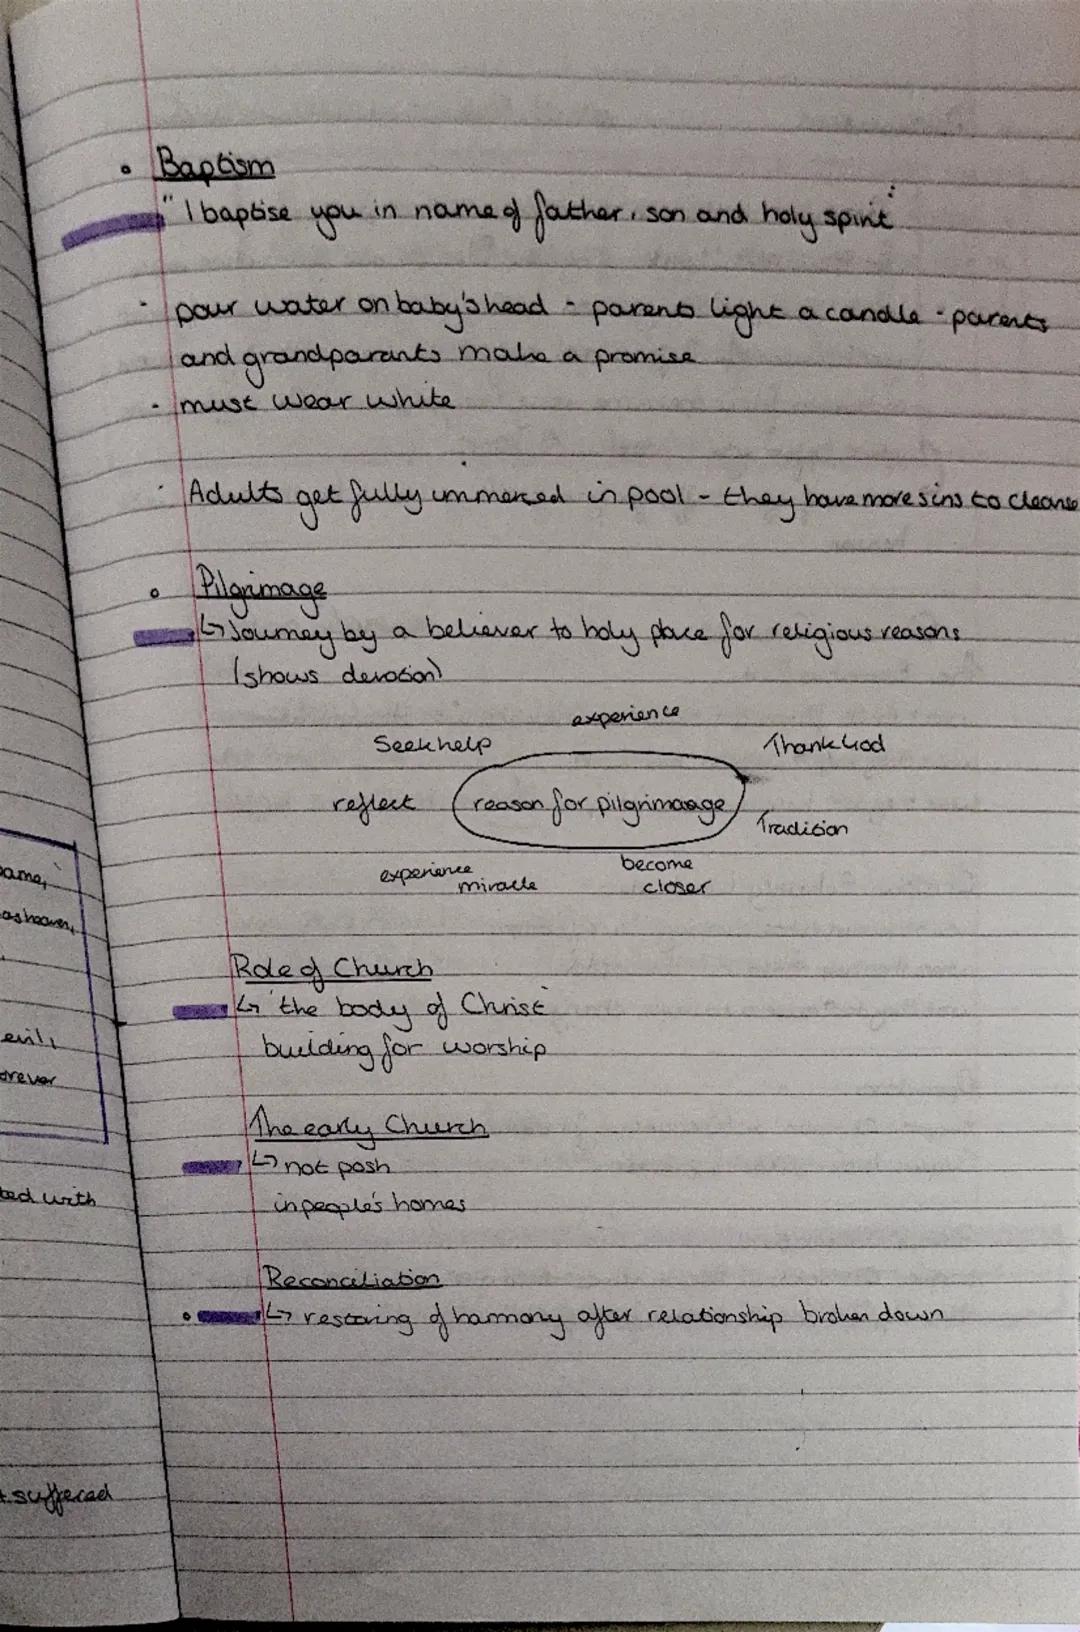 Baptism
"I baptise you in name of father, son and holy spirit"
pour water on baby's head - parents light a candle - parents
and grandparents make a promise
must wear white
Adults get fully immersed in pool - they have more sins to cleanse
Pilgrimage
↳ Journey by a believer to holy place for religious reasons
(shows devotion)
experience
Seek help
Thank God
reflect
reason for pilgrimaage
Tradition
experience
miracle
become
closer
Role of Church
↳ 'the body of Christ'
building for worship
The early Church
↳ not posh
in people's homes
Reconciliation
↳ restoring of harmony after relationship broken down
as heaven,
evil,
orever
ted with
suffered